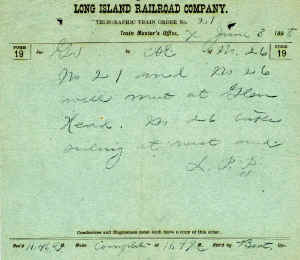 LONG ISLAND RAILROAD COMPANY.
TELEGRAPHIC TRAIN ORDER No. 21
Train Master's Office, June 3 189
FORM 19
To C&E No 26
FORM 19
No 21 and No 26
will meet at Glen
Head. No 26 takes
siding at west end
Conductors and Enginemen must each have a copy of this order.
Rec'd Made Complete at Rec'd by